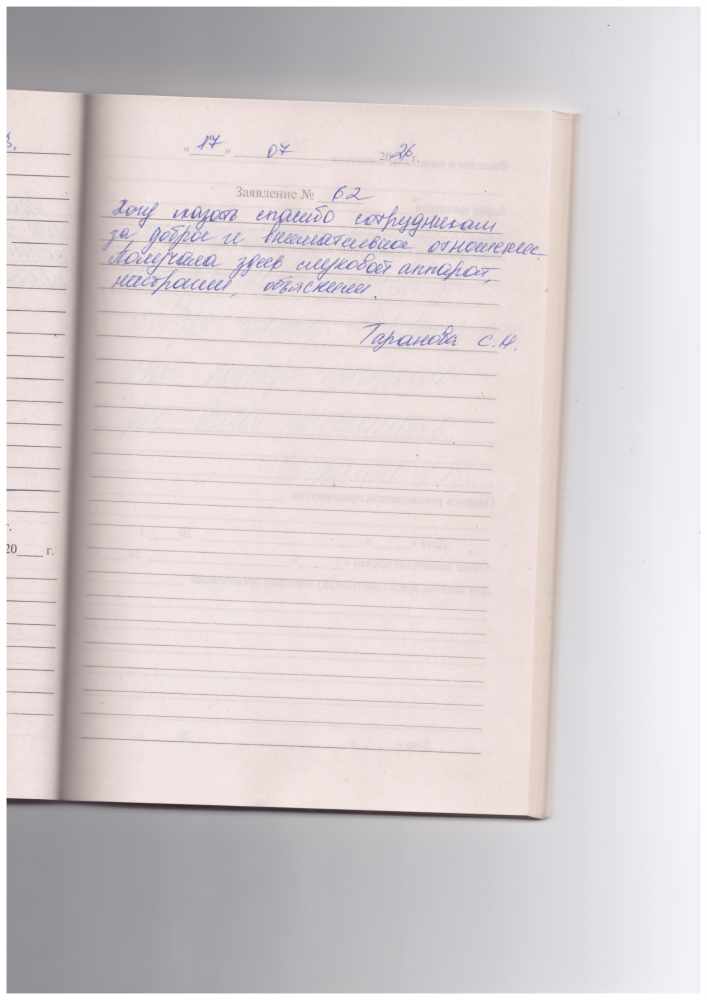 «17» 07 2026 г.
Заявление № 62
Хочу сказать спасибо сотрудникам
за доброе и внимательное отношение.
Получила здесь слуховой аппарат,
настроили, объяснили.
Таранова С.Н.
г.
20____ г.